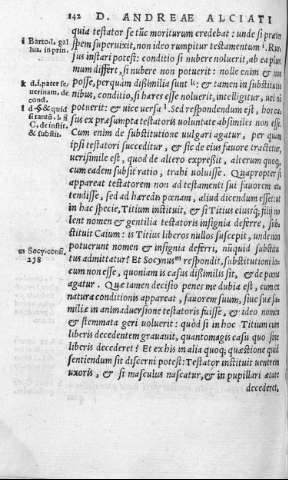 142 D. ANDREAE ALCIATI
quia testator se sic moriturum credebat: unde si præm
i Bartol. gal
lus. in prin.
spẽm superuixit, non ideo rumpitur testamentum i. Rur
sus instari potest: conditio si nubere noluerit, ab ea plu
mum differt, si nubere non potuerit: nolle enim & non
k d.l. pater se
uerinam. de
cond.
posse, perquàm dissimilia sunt k: & tamen in substitutio
nibus, conditio, si hæres esse noluerit, intelligitur, uel si
potuerit: & uice uersa l. Sed respondendum est, hoc
sus ex præsumpta testatoris uoluntate absimiles non esse.
C. de instit.
& substit.
Cum enim de substitutione uulgari agatur, per quam
ipsi testatori succeditur, & sic de eius fauore tractetur,
uerisimile est, quod de altero expreßit, alterum quoq;
cum eadem subsit ratio, trahi uoluisse. Quapropter si
appareat testatorem non ad testamenti sui fauorem at
tendisse, sed ad hæredis pœnam, aliud dicendum esset: ut
in hac specie, Titium instituit, & si Titius eiusq; filij nol
lent nomen & gentilia testatoris insignia deferre, sibi sub
stituit Caium: is Titius liberos nullos suscepit, unde non
potuerunt nomen & insignia deferri, nunquid substitu
m Socy. consi.
238
tus admittatur? Et Socynus m respondit, substitutioni lo
cum non esse, quoniam is casus dissimilis sit, & de pœna
agatur. Quæ tamen decisio penes me dubia est, cum ex
natura conditionis appareat, fauorem suum, siue suæ fa
miliæ in animaduersione testatoris fuisse, & ideo nomen
& stemmata geri uoluerit: quòd si in hoc Titium cum
liberis decedentem grauauit, quanto magis casu quo sine
liberis decederet? Et ex his in alia quoq; quæstione quid
sentiendum sit discerni potest: Testator instituit uentrem
uxoris, & si masculus nascatur, & in pupillari ætate
decederet,